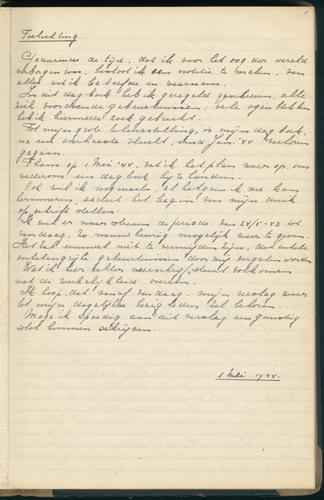 Toelichting.
Gedurende de tijd, dat ik voor het oog der wereld
verborgen was, besloot ik een notitie te maken, van
alles wat ik beleefde en vernam.
In dit dagboek heb ik geregeld geschreven, alle
voorkomende gebeurtenissen; vele ogenblikken
heb ik hiermede zoek gebracht.
Tot mijn grote teleurstelling, is mijn dagboek,
na een overhaaste vlucht, eind Jan. '44 verloren
gegaan.
Thans op 1 Mei '44, vat ik het plan weer op, om
wederom een dagboek bij te houden.
Ook wil ik nogmaals, al hetgeen ik me kan
herinneren, sedert het begin van mijn duik
op schrift stellen.
Ik wil er naar streven de periode, van 24/5-43 tot
vandaag, zo nauwkeurig mogelijk weer te geven.
Het zal evenwel niet te vermijden zijn, dat enkele
onbelangrijke gebeurtenissen door mij vergeten worden
Wat ik hier echter neerschrijf, stemt volkomen
met de werkelijkheid overeen.
Ik hoop, dat vanaf vandaag, mijn verslag weer
tot mijn dagelijkse bezigheden zal behoren.
Moge ik spoedig aan dit verslag een gunstig
slot kunnen schrijven.
1 Mei 1944.